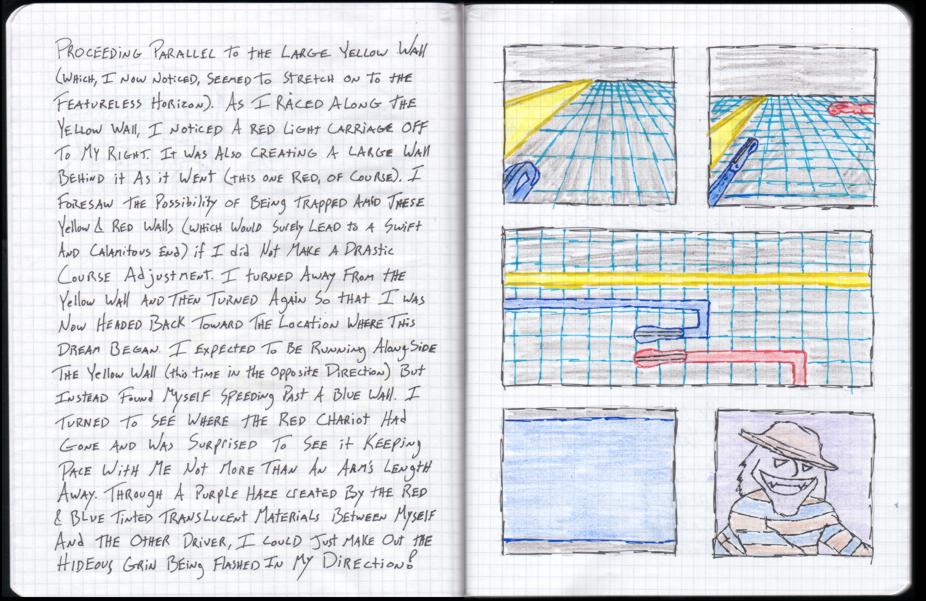 Proceeding Parallel to the Large Yellow Wall
(Which, I now noticed, seemed to stretch on to the
Featureless Horizon). As I raced along the
Yellow Wall, I noticed a red light carriage off
to my right. It was also creating a large wall
behind it as it went (this one red, of course). I
foresaw the possibility of being trapped amid these
Yellow & Red Walls (which would surely lead to a swift
and calamitous end) if I did not make a drastic
course adjustment. I turned away from the
Yellow Wall and then turned again so that I was
now headed back toward the location where this
dream began. I expected to be running alongside
the Yellow Wall (this time in the opposite direction) but
instead found myself speeding past a blue wall. I
turned to see where the red chariot had
gone and was surprised to see it keeping
pace with me not more than an arm's length
away. Through a purple haze created by the red
& blue tinted translucent materials between myself
and the other driver, I could just make out the
hideous grin being flashed in my direction!